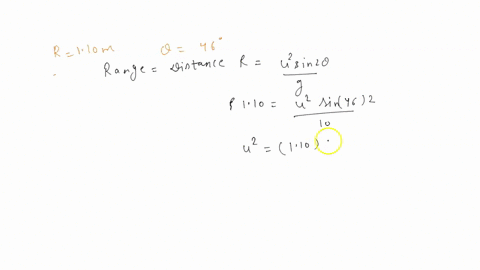 R = 1.10m θ = 46°
Range = Distance R = u² sin2θ / g
1.10 = u² sin(46)2 / 10
u² = (1.10)